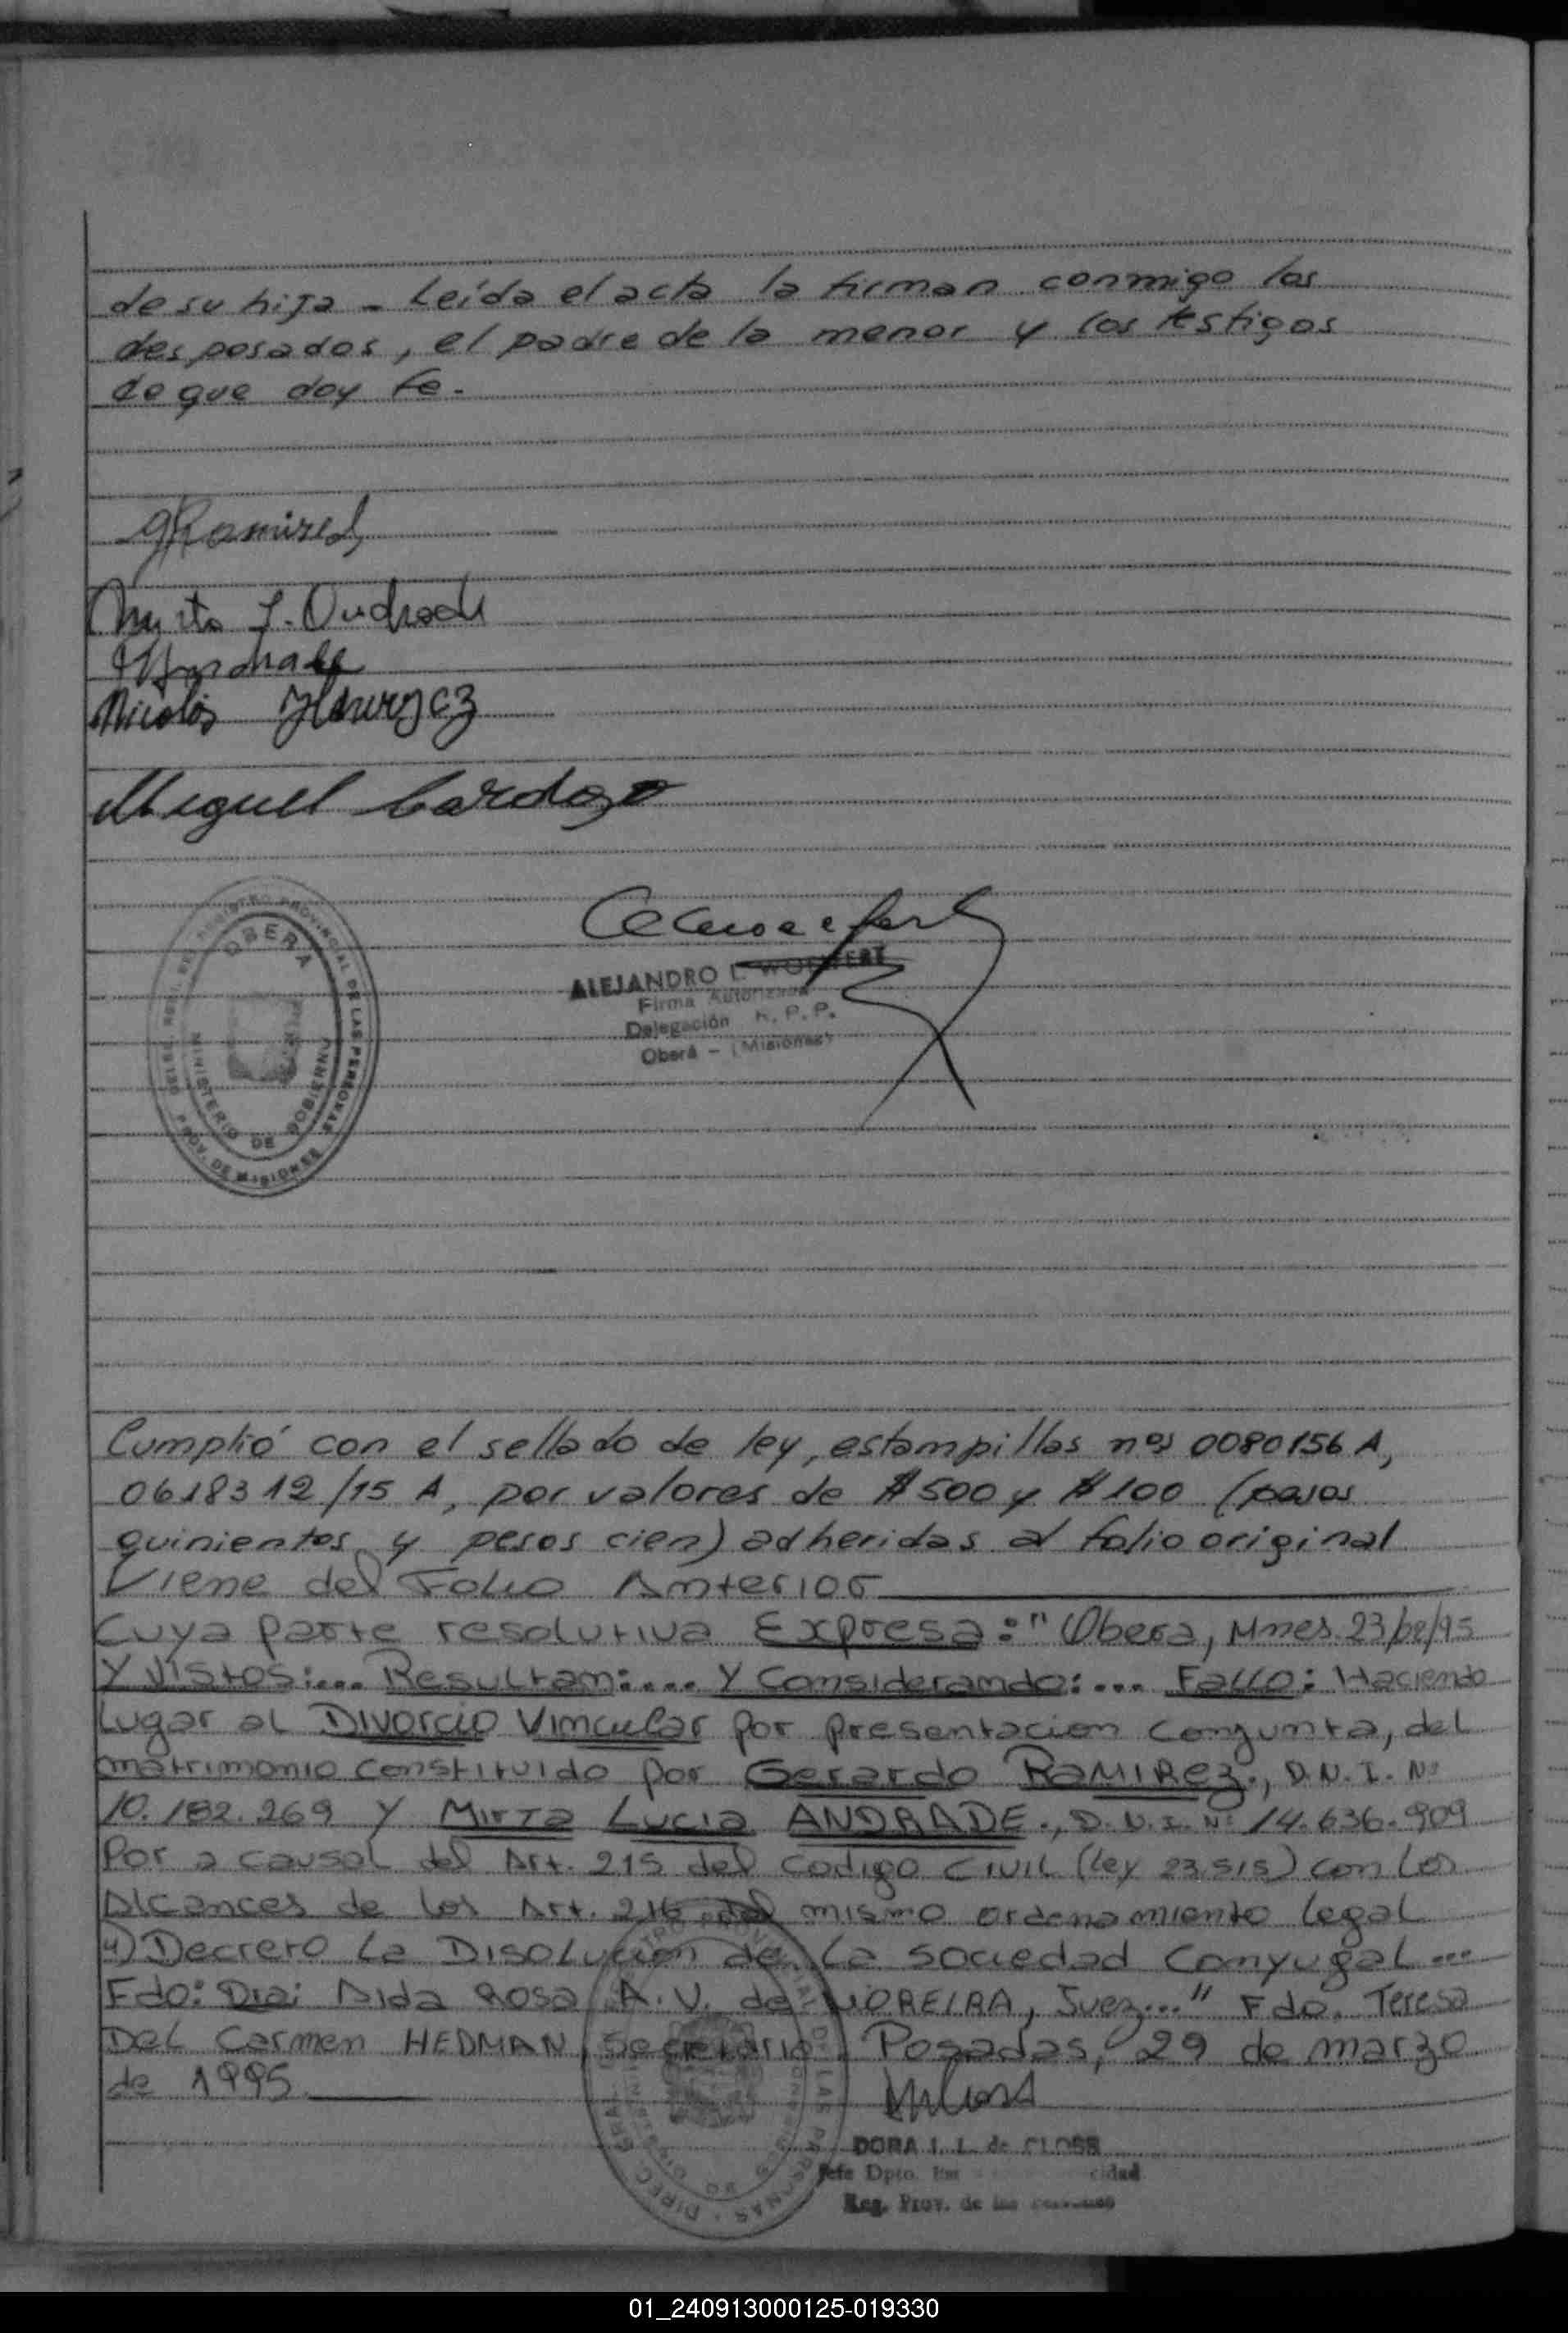 de su hija - Leída el acta la firman conmigo los
desposados, el padre de la menor y los testigos
de que doy fe.
gRamirez
Myrta L. Andrade
Andrade
Nicolás
Miguel Cardozo
REGISTRO PROVINCIAL DE LAS PERSONAS
PROV. DE MISIONES
OBERA
MINISTERIO DE GOBIERNO
ALEJANDRO L. WOEFFERT
Firma Autorizada
Delegación R. P. P.
Oberá - (Misiones)
Cumplió con el sellado de ley, estampillas nos 0080156 A,
0618312/15 A, por valores de $500 y $100 (pesos
quinientos y pesos cien) adheridas al folio original
Viene del Folio Anterior
Cuya parte resolutiva Expresa: "Obera, Mnes. 23/02/95
Y Vistos:... Resultan:.... Y Considerando:... Fallo: Haciendo
Lugar al Divorcio Vincular por presentacion conjunta, del
matrimonio constituido por Gerardo RAMIREZ., D.N.I. Nº
10.182.269 y Mirta Lucia ANDRADE., D.N.I. Nº 14.636.909
Por a causal del Art. 215 del Codigo Civil (ley 23.515) con los
Alcances de los Art. 216 del mismo ordenamiento legal
4) Decreto La Disolucion de La sociedad Conyugal ...
Fdo: Dra: Aida Rosa A.V. de MOREIRA, Juez..." Fdo. Teresa
Del Carmen HEDMAN, Secretario. Posadas, 29 de marzo
de 1995
DORA I. L. de CLOSS
Jefe Dpto.
Reg. Prov. de las
01_240913000125-019330